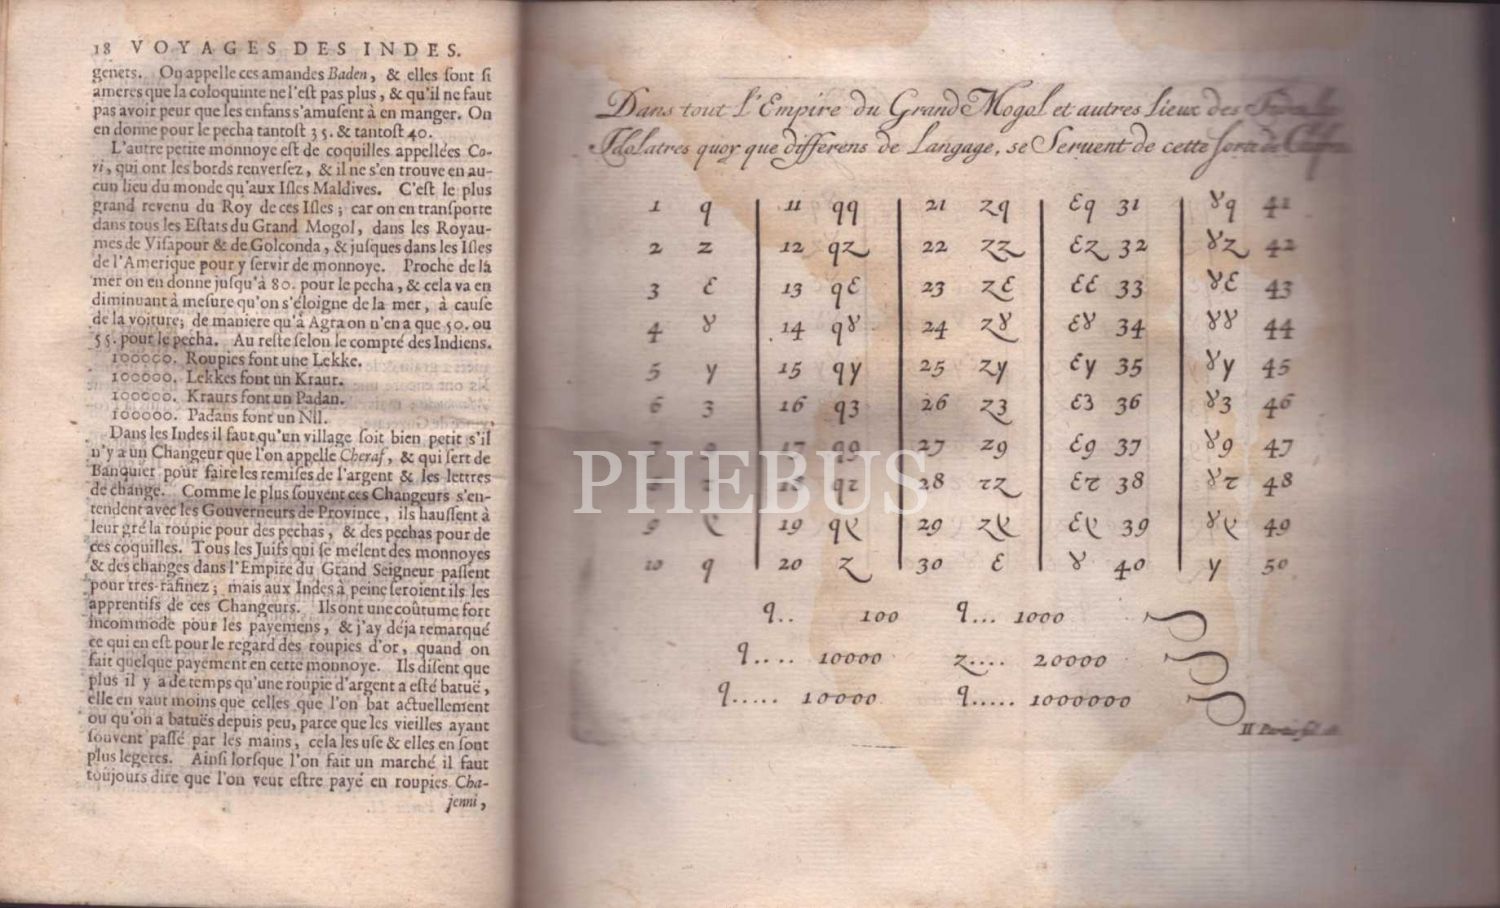 18 VOYAGES DES INDES.
genets. On appelle ces amandes Baden, & elles ſont ſi
ameres que la coloquinte ne l'eſt pas plus, & qu'il ne faut
pas avoir peur que les enfans s'amuſent à en manger. On
en donne pour le pecha tantoſt 35. & tantoſt 40.
L'autre petite monnoye eſt de coquilles appellées Co-
ri, qui ont les bords renverſez, & il ne s'en trouve en au-
cun lieu du monde qu'aux Iſles Maldives. C'eſt le plus
grand revenu du Roy de ces Iſles; car on en tranſporte
dans tous les Eſtats du Grand Mogol, dans les Royau-
mes de Viſapour & de Golconda, & juſques dans les Iſles
de l'Amerique pour y ſervir de monnoye. Proche de la
mer on en donne juſqu'à 80. pour le pecha, & cela va en
diminuant à meſure qu'on s'éloigne de la mer, à cauſe
de la voiture; de maniere qu'à Agra on n'en a que 50. ou
55. pour le pecha. Au reſte ſelon le compte des Indiens.
100000. Roupies font une Lekke.
100000. Lekkes font un Kraur.
100000. Kraurs font un Padan.
100000. Padans font un Nil.
Dans les Indes il faut qu'un village ſoit bien petit s'il
n'y a un Changeur que l'on appelle Cheraf, & qui ſert de
Banquier pour faire les remiſes de l'argent & les lettres
de change. Comme le plus ſouvent ces Changeurs s'en-
tendent avec les Gouverneurs de Province, ils hauſſent à
leur gré la roupie pour des pechas, & des pechas pour de
ces coquilles. Tous les Juifs qui ſe mélent des monnoyes
& des changes dans l'Empire du Grand Seigneur paſſent
pour tres-rafinez; mais aux Indes à peine ſeroient ils les
apprentifs de ces Changeurs. Ils ont une coûtume fort
incommode pour les payemens, & j'ay déja remarqué
ce qui en eſt pour le regard des roupies d'or, quand on
fait quelque payement en cette monnoye. Ils diſent que
plus il y a de temps qu'une roupie d'argent a eſté batuë,
elle en vaut moins que celles que l'on bat actuellement
ou qu'on a batuës depuis peu, parce que les vieilles ayant
ſouvent paſſé par les mains, cela les uſe & elles en ſont
plus legeres. Ainſi lorſque l'on fait un marché il faut
toujours dire que l'on veut eſtre payé en roupies Cha-
jenni,
Dans tout l'Empire du Grand Mogol et autres lieux des
Idolatres quoy que differens de Langage, se Seruent de cette sorte de
1 q 11 qq 21 zq ℇq 31 ४q 41
2 z 12 qz 22 zz ℇz 32 ४z 42
3 ℇ 13 qℇ 23 zℇ ℇℇ 33 ४ℇ 43
4 ४ 14 q४ 24 z४ ℇ४ 34 ४४ 44
5 y 15 qy 25 zy ℇy 35 ४y 45
6 3 16 q3 26 z3 ℇ3 36 ४3 46
17 27 z9 ℇ9 37 ४9 47
28 τz ℇτ 38 ४τ 48
9 19 29 39 49
10 q 20 z 30 ℇ ४ 40 y 50
q.. 100 q... 1000
q.... 10000 z.... 20000
q..... 10000 q..... 1000000
PHEBUS